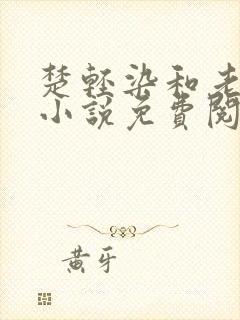 楚轻染和老
小说免费阅
黄牙